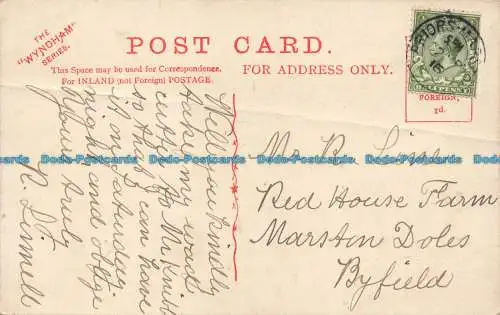 THE
"WYNDHAM"
SERIES.
POST CARD.
This Space may be used for Correspondence.
For INLAND (not Foreign) POSTAGE.
FOR ADDRESS ONLY.
PRIORS
HALFPENNY
FOREIGN,
1d.
Will you kindly
take my wood
cutter to Mr Knibb
so that I can have
it on Saturday
night and oblige
Yours truly
R. Linnell
Mr R. Line
Red House Farm
Marston Doles
Byfield
Postcards-Online Postcards-Online Postcards-Online Postcards-Online